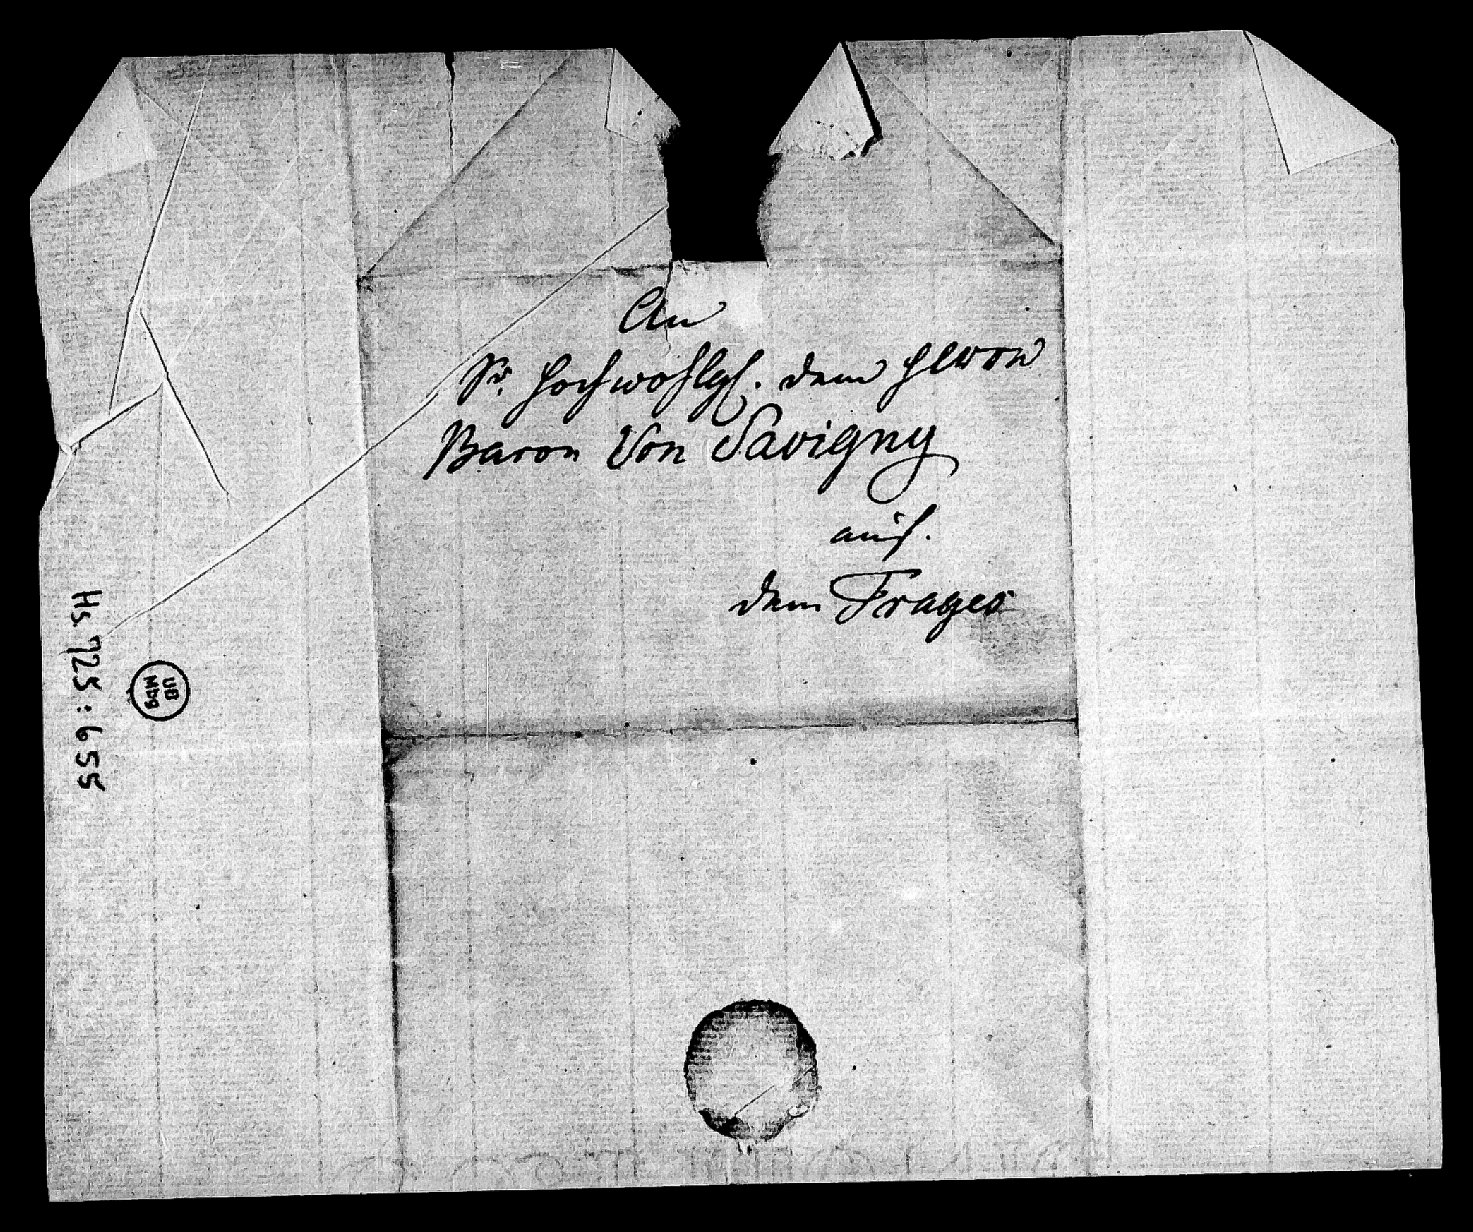 An
Sr. Hochwohlgb. dem Herrn
Baron Von Savigny
auf.
dem Frages
Hs 725 : 655
UB
Mbg